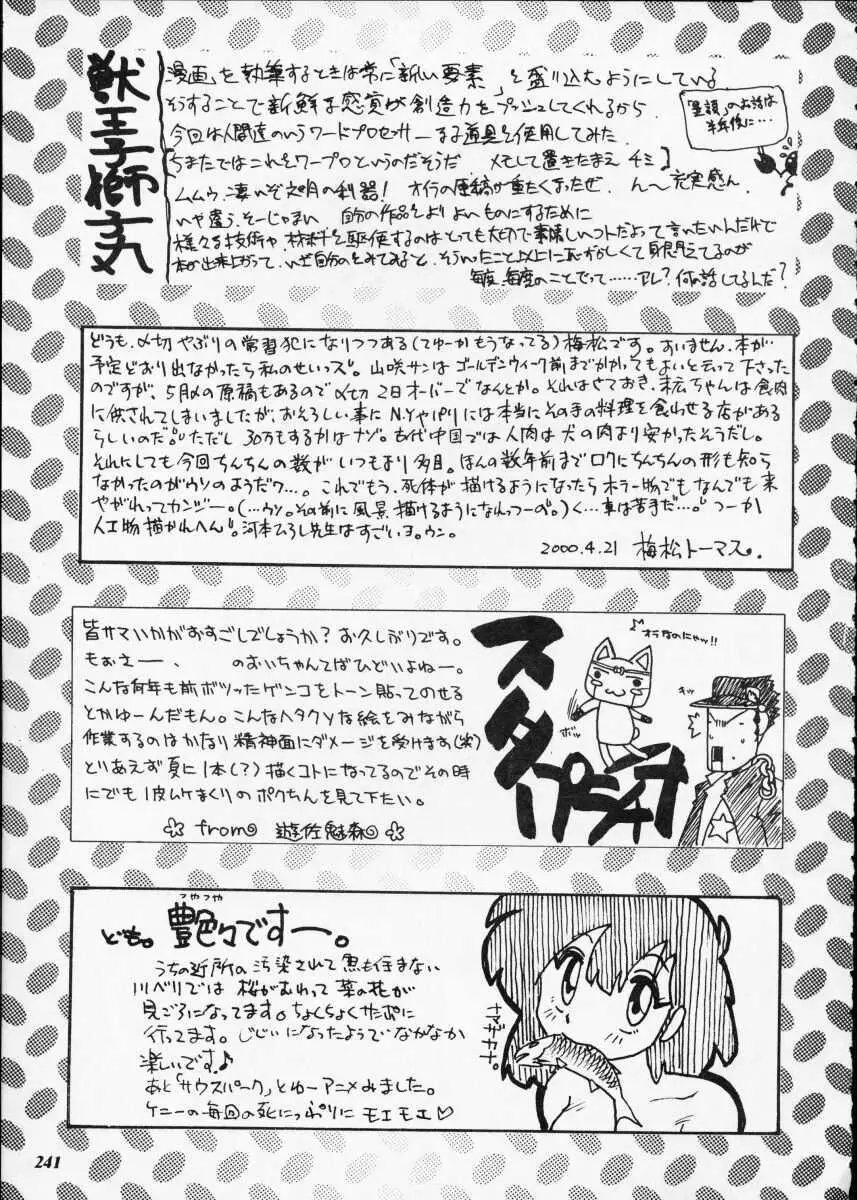 獣王子獅子丸
「漫画」を執筆するときは常に「新しい要素」を盛り込むようにしている
そうすることで新鮮な感覚が創造力をプッシュしてくれるから
今回は人間達のいうワードプロセッサーなる道具を使用してみた
ちまたではこれをワープロというのだそうだ メモして置きたまえ チミ
ムムウ、凄いぞ文明の利器! オイラの原稿が重たくなったぜ ん〜充実感ん
いや違う、そーじゃない 自分の作品をよりよいものにするために
様々な技術や材料を駆使するのはとっても大切で素晴しいコトだよって言いたいんだけど
本が出来上がって、いざ自分のをみてみると、そういったこと以上に恥ずかしくて身悶えてるのが
毎度、毎度のことでって……アレ?何の話してるんだ?
のお話は
半年後に…
どうも、〆切やぶりの常習犯になりつつある(てゆーかもうなってる)梅松です。すいません、本が…
予定どおり出なかったら私のせいっス。山咲サンはゴールデンウィーク前までかかってもよいと云って下さった
のですが、5月〆の原稿もあるので〆切2日オーバーでなんとか。それはさておき、ちゃんは食肉
に供されてしまいましたが、おそろしい事にN.Yやパリには本当にそのまの料理を食わせる店がある
らしいのだ。ただし30万もするかはナゾ。古代中国では人肉は犬の肉より安かったそうだし。
それにしても今回ちんちんの数がいつもより多目。ほんの数年前までロクにちんちんの形も知ら
なかったのがウソのようだワ…。これでもう、死体が描けるようになったらホラー物でもなんでも来
やがれってカンジー。(…ウソ。その前に風景描けるようになれっつーの。)く…車は苦手だ…。つーか
人工物描かれへん。河本ひろし先生はすごいよ。ウン。
2000.4.21 梅松トーマス。
皆サマいかがおすごしでしょうか?お久しぶりです。
もぉさー、 のおいちゃんてばひどいよねー。
こんな何年も前ボツったゲンコをトーン貼ってのせる
とかゆーんだもん。こんなヘタクソな絵をみながら
作業するのはかなり精神面にダメージを受けます(笑)
とりあえず夏に1本(?)描くコトになってるのでその時
にでも1皮ムケまくりのボクちんを見て下たい。
☆from 遊佐魅森 ☆
オラなのにゃッ!!
スタープラチナ
つやつや
ども。艶々ですー。
うちの近所の汚染されて魚も住まない
川ベリでは桜がおわって菜の花が
見ごろになってます。ちょくちょくサンポに
行ってます。じじぃになったようでなかなか
楽しいです♪
あと「サウスパーク」とゆーアニメみました。
ケニーの毎回の死にっぷりにモエモエ♡
ナマザカナ。
241